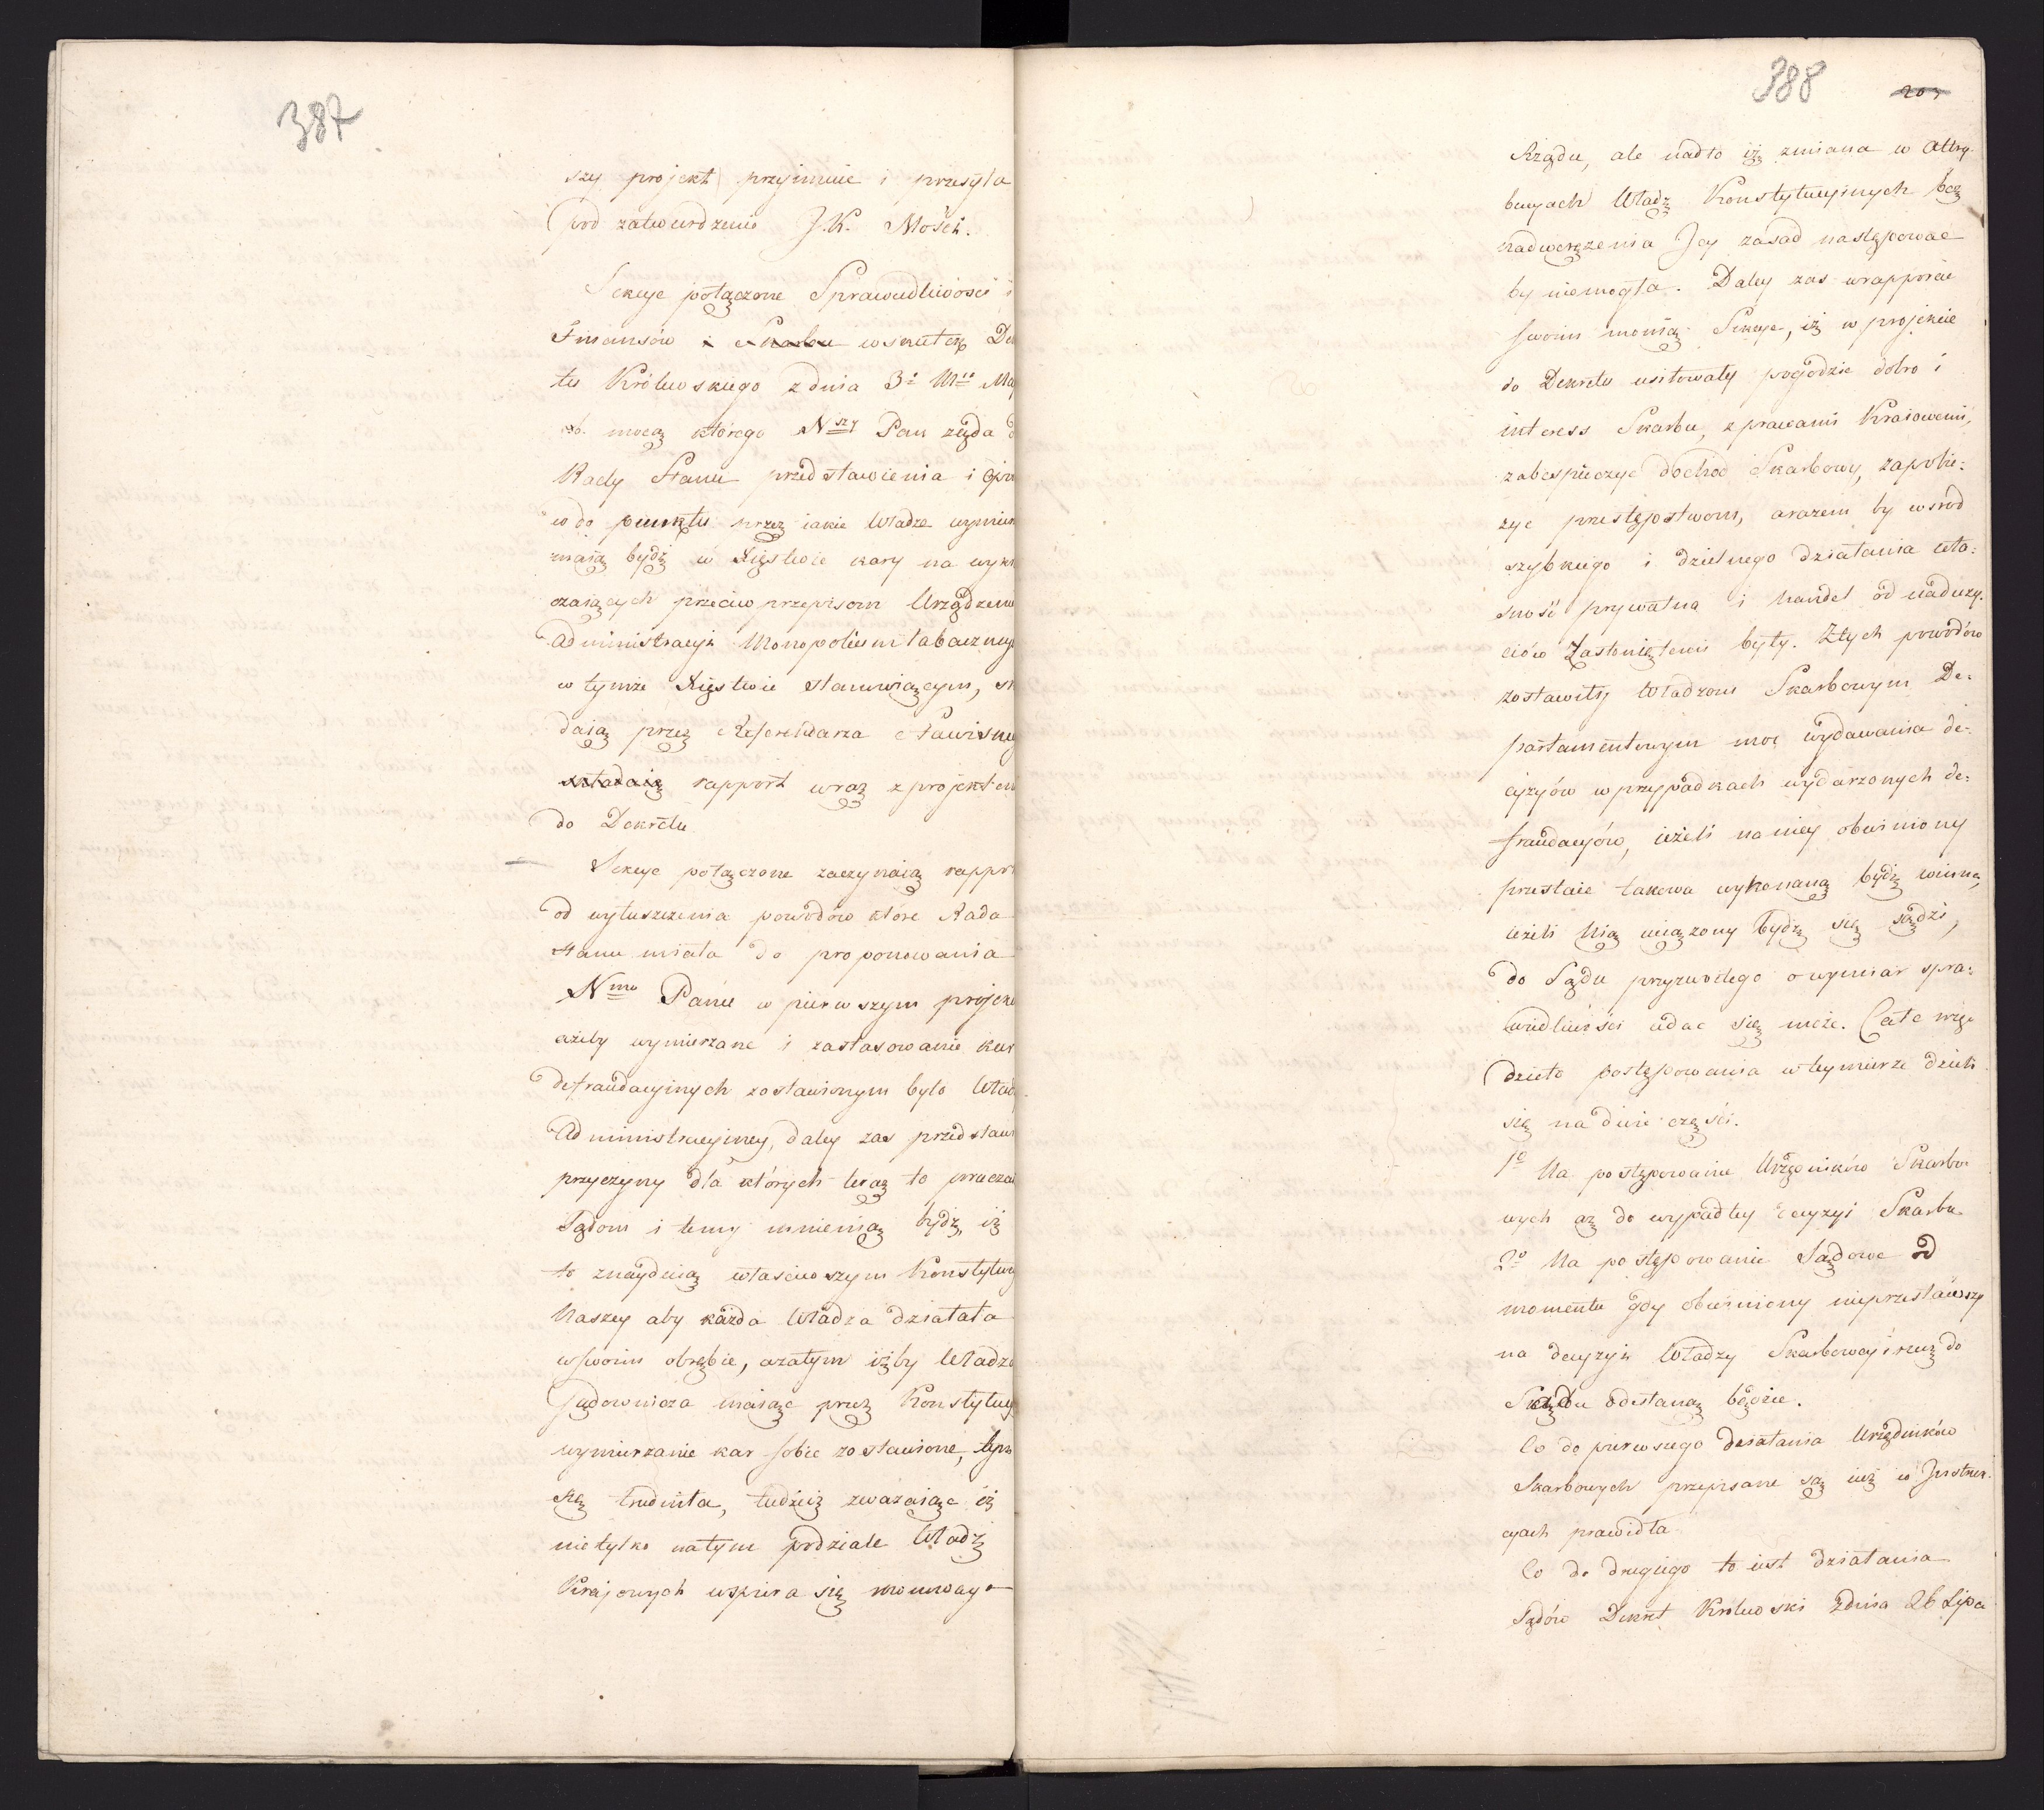 387
szy projekt przyimuie i przesyła
pod zatwierdzenie J.K. Mości.
Sekcye połączone Sprawiedliwości i
Finansów i Skarbu wskutek De
tu Królewskiego z dnia 3º Mca Ma
mocą którego Nszy Pan żąda d
Rady Stanu przedstawienia i Opin
co do punktu przez iakie Władze wymier
zaią bydź w Xięstwie kary na wykr
czaiących przeciw przepisom Urządzenie
Administracyi Monopolium tabaczney
w tymże Xięstwie stanowiącym, sk
daią przez Referendarza
składaią rapport wraz z projektem
do Dekretu
— Sekcye połączone zaczynaią rappor
od wyłuszczenia powodów które Rada
Stanu miała do proponowania
Nmu Panu w pierwszym projek
ażeby wymierzane i zastasowanie kar
defraudacyinych zostawionym było Wład
Administracyiney, daley zas przedstawi
przyczyny dla których teraz to przecza
Sądom i temy mniemaią bydź, iż
to znayduią właściwszym Konstytucy
Naszey aby każda Władza działała
w swoim obrębie, azatym iżby Władza
Sądownicza maiąc przez Konstytucy
wymierzanie kar sobie zostawione, tym
się trudniła, tudzież zważaiąc iż
nietylko natym podziale Władz
Kraiowych wspiera się

388 203
Rządu, ale nadto iż zmiana w Attry-
bucyach Władz Konstytucyinych bez
nadwerężenia Jey zasad następować
by niemogła. Daley zas wrapporcie
swoim mowią Sekcye, iż w projekcie
do Dekretu usiłowały pogodzić dobro i
interess Skarbu, z prawami Kraiowemi,
zabespieczyc dochod Skarbowy, zapobie:
zyc przestępstwom, arazem by wsrod
szybkiego i dzielnego działania wła:
sność prywatna i handel od naduzy-
ciów Zasłonięteni były. Ztych powodów
zostawiły Władzom Skarbowym De:
partamentowym moc wydawania de-
cyzyów w przypadkach wydarzonych de:
fraudacyów, ieżeli na niey obwiniony
przestaie takowa wykonaną bydź winna,
ieżeli Nią uciążony bydź się sądzi,
do Sądu przyzwoitego o wymiar spra:
wiedliwości udać się może. Całe więc
dzieło postępowania w teymierze dzieli
się na dwie części.
1º Na postępowanie Urzędników Skarbo
wych az do wypadłey decyzyi Skarbu
2º Na postępowanie Sądowe od
momentu gdy obwiniony nieprzestawszy
na decyzyi Władzy Skarbowey do
Sądu odesłaną będzie.
Co do pierwszego działania Urzędników
Skarbowych przepisane są iuż w Instruk-
cyach prawidła
Co do drugiego to iest działania
Sądów Dekret Krolewski zdnia 26 Lipca